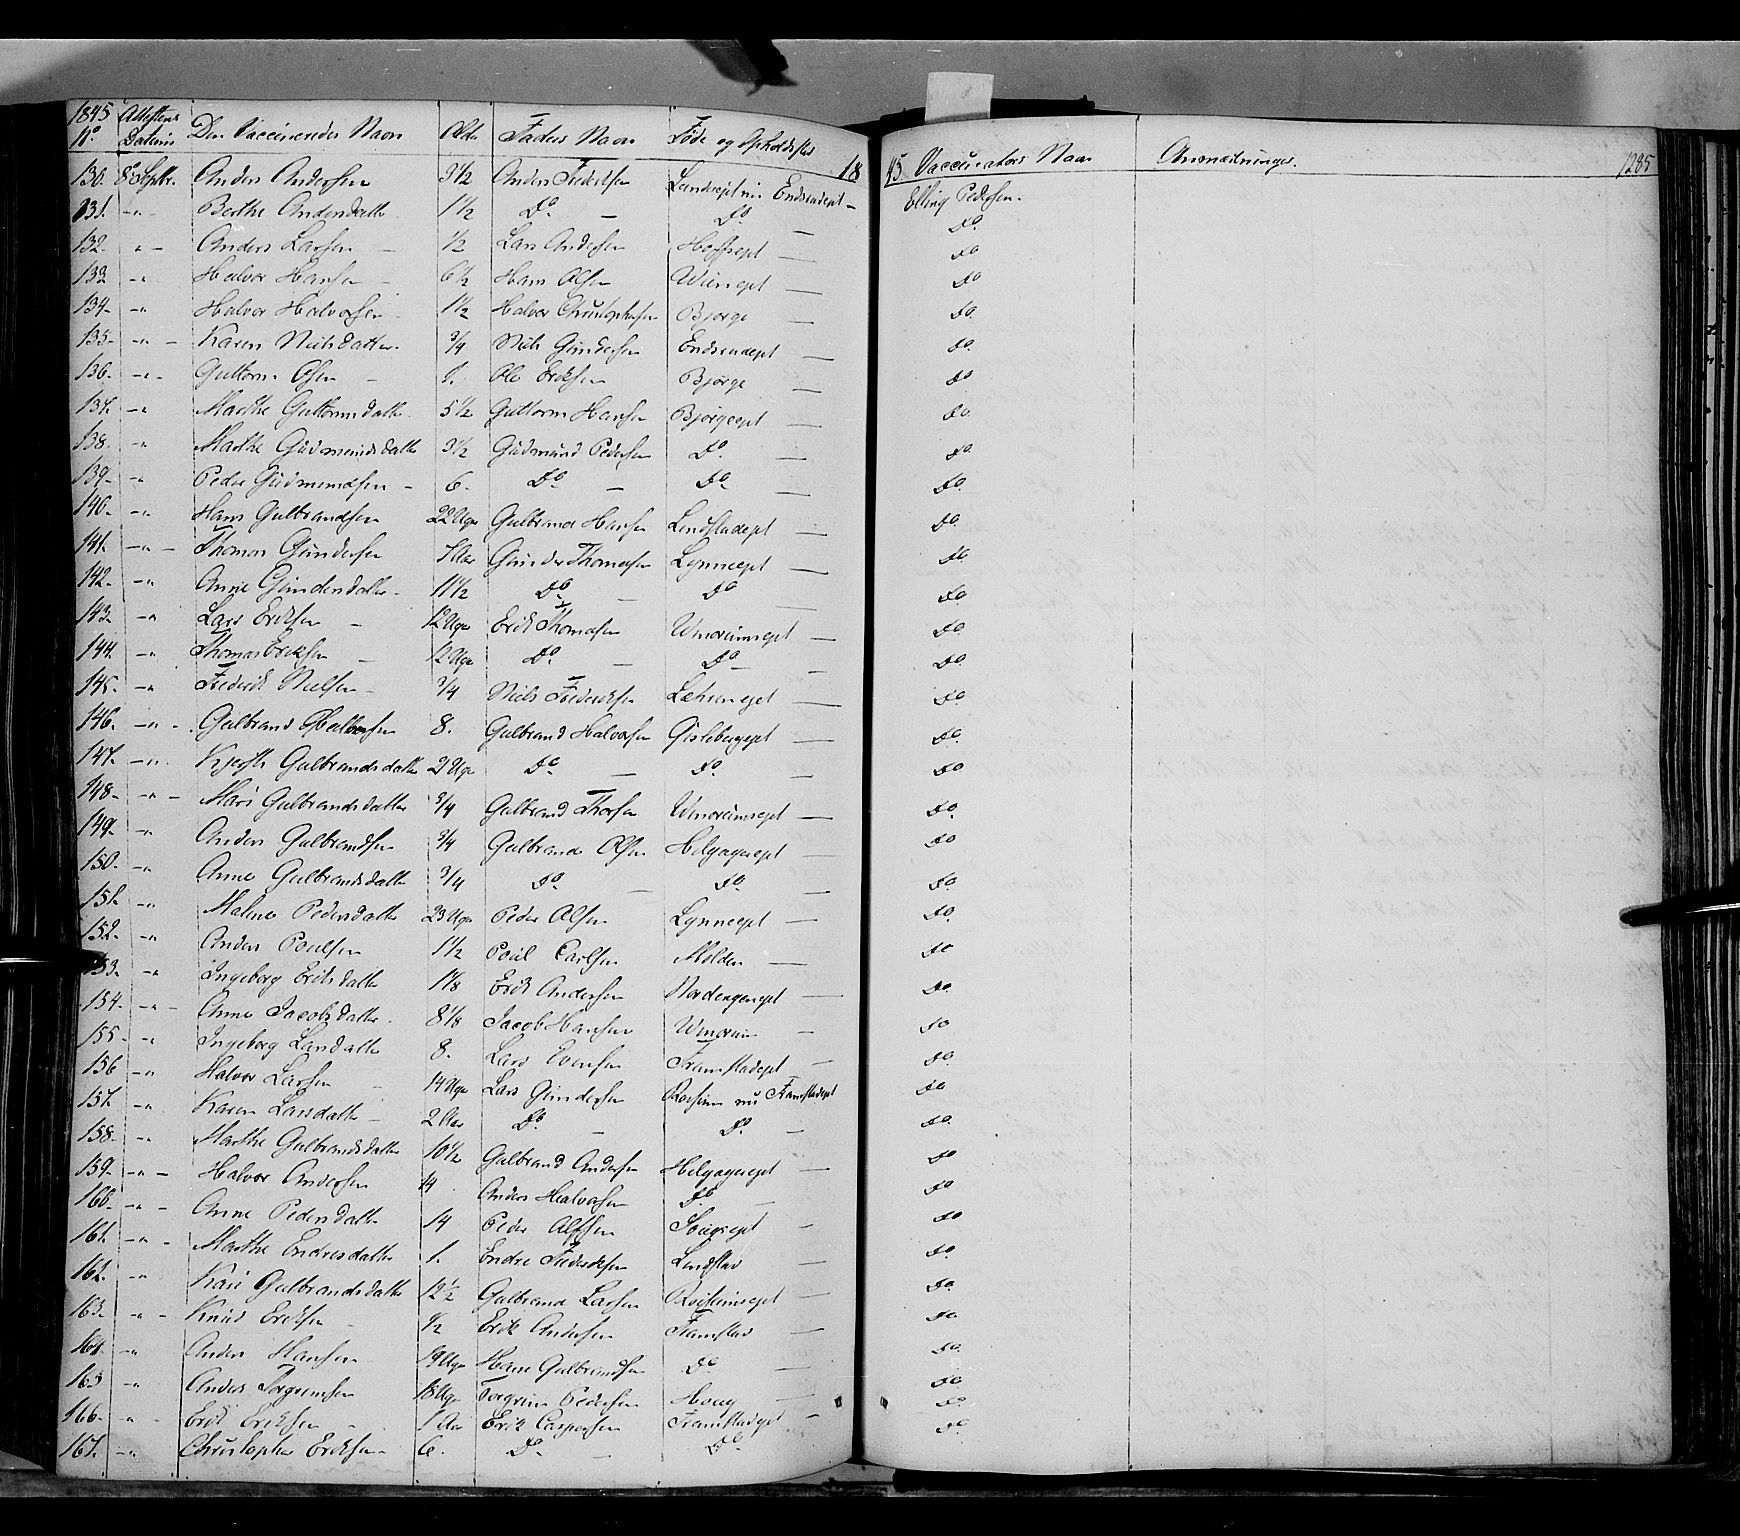 1845 Attestens 18 45 1285
No Datum Den Vaccineredes Navn Alder Faders Navn Føde og Opholdssted Vaccinateurs Navn Anmærkninger.
130. 8de Septbr. Anders Andersen 3 1/2 Anders Frederiksen Elling Pedersen.
131. -"- Berthe Andersdatter 1 1/2 Do Do Do
132. -"- Anders Larsen 1/2 Lars Andersen Do
133 -"- Halvor Hansen 6 1/2 Hans Olsen Do
134. -"- Halvor Halvorsen 1 1/2 Halvor Christophersen Bjørge Do
135. -"- Karen Nielsdatter 3/4 Niels Gundersen Do
136. -"- Guttorm Olsen Ole Eriksen Bjørge Do
137. -"- Marthe Guttormsdatter 5 1/2 Guttorm Hansen Bjørgeept Do
138. -"- Marthe Gudmundsdatter 3 1/2 Gudmund Pedersen Do Do
139. -"- Peder Gudmundsen 6. Do Do Do
140. -"- Hans Gulbrandsen 22 Uger Gulbrand Hansen Lindstadept Do
141. -"- Thomas Gundersen 7 Aar Gunder Thomesen Lynneept Do
142. -"- Anne Gundersdatter 11 1/2 Do Do Do
143. -"- Lars Eriksen 12 Uger Erik Thomesen Do
144. -"- Thomas Eriksen 12 Uger Do Do Do
145. -"- Frederik Nielsen 3/4 Niels Frederiksen Do
146. -"- Gulbrand Gulbrandsen 8. Gulbrand Halvorsen Gislebergept Do
147. -"- Kjersti Gulbrandsdatter 21 Uger Do Do Do
148. -"- Mari Gulbrandsdatter 3/4 Gulbrand Thorsen Do
149. -"- Anders Gulbrandsen 3/4 Gulbrand Olsen Helgagerept Do
150. -"- Anne Gulbrandsdatter 3/4 Do Do Do
151. -"- Malene Pedersdatter 23 Uger Peder Olsen Lynneept Do
152. -"- Anders Poulsen 1 1/2 Poul Carlsen Molden Do
153. -"- Ingeborg Eriksdatter 1 1/8 Erik Andersen Nordengenept Do
154. -"- Anne Jacobsdatter 8 1/8 Jacob Hansen Do
155. -"- Ingeborg Larsdatter 8. Lars Evensen Framstadept Do
156 -"- Halvor Larsen 14 Uger Lars Gundersen nu Framstadept Do
157. -"- Karen Larsdatter 2 Aar Do Do Do
158. -"- Marthe Gulbrandsdatter 10 1/2 Gulbrand Andersen Helgagerept Do
159. -"- Halvor Andersen 14 Anders Halvorsen Do Do
160. -"- Anne Pedersdatter 14 Peder Do
161. -"- Marthe Endresdatter 1. Endre Frederiksen Lindstad Do
162. -"- Kari Gulbrandsdatter 12 1/2 Gulbrand Larsen Do
163. -"- Knud Eriksen 1/2 Erik Andersen Framstad Do
164. -"- Anders Hansen 19 Uger Hans Gulbrandsen Do Do
165 -"- Anders Torgrimsen 18 Uger Torgrim Pedersen Houg Do
166. -"- Erik Eriksen 1 Aar Erik Caspersen Framstadept Do
167. -"- Christopher Eriksen 6. Do Do Do